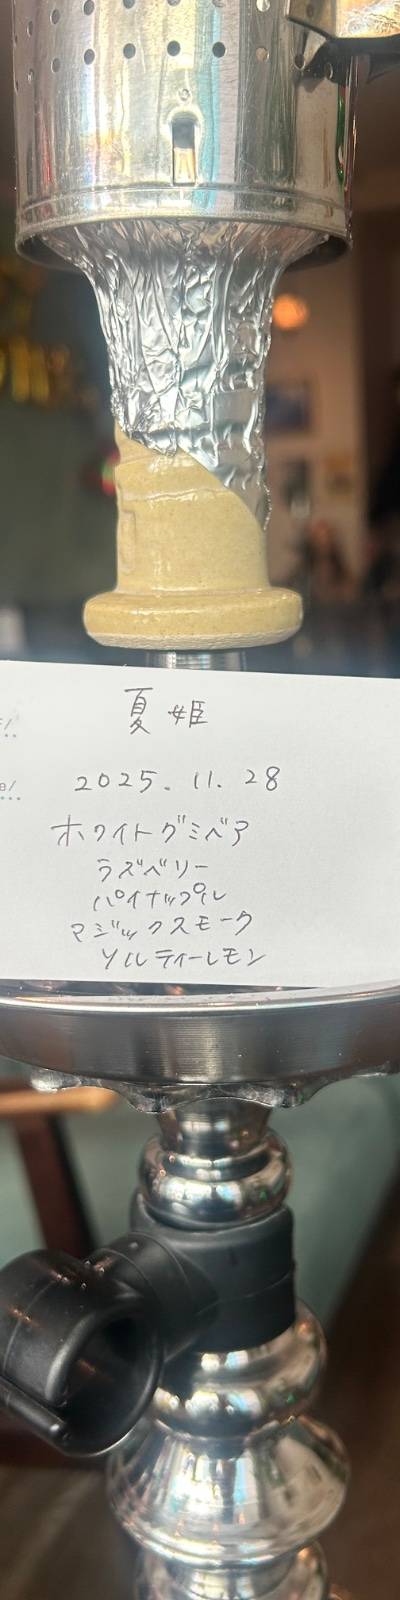 夏姫
2025.11.28
ホワイトグミベア
ラズベリー
パイナップル
マジックスモーク
ソルティーレモン